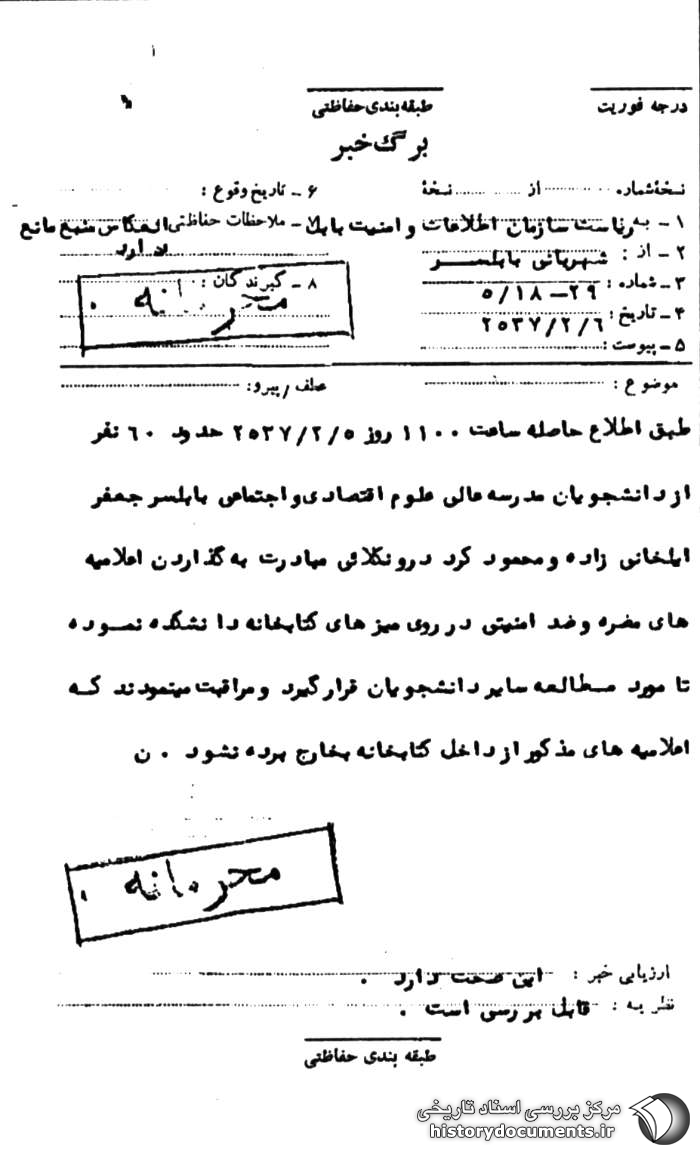 درجه فوریت
طبقه‌بندی حفاظتی
برگ خبر
نسخهٔ شماره ............ از ............ نسخهٔ
۱ ـ به ریاست سازمان اطلاعات و امنیت بابل
۲ ـ از : شهربانی بابلسر
۳ ـ شماره : ۲۹ـ ۵/۱۸
۴ ـ تاریخ : ۲۵۳۷/۲/۶
۵ ـ پیوست :
۶ ـ تاریخ وقوع :
۷ ـ ملاحظات حفاظتی انعکاس منبع مانع
دارد
۸ ـ گیرندگان :
محرمانه .
موضوع :
عطف / پیرو :
طبق اطلاع حاصله ساعت ۱۱۰۰ روز ۲۵۳۷/۲/۵ حدود ۶۰ نفر
از دانشجویان مدرسه عالی علوم اقتصادی و اجتماعی بابلسر جعفر
ایلخانی زاده و محمود کرد درونکلائی مبادرت به گذاردن اعلامیه
های مضره و ضد امنیتی در روی میز های کتابخانه دانشکده نموده
تا مورد مطالعه سایر دانشجویان قرار گیرد و مراقبت مینمودند که
اعلامیه های مذکور از داخل کتابخانه بخارج برده نشود . ن
محرمانه .
ارزیابی خبر : این صحت دارد .
نظریه : قابل بررسی است .
طبقه بندی حفاظتی
مرکز بررسی اسناد تاریخی
historydocuments.ir